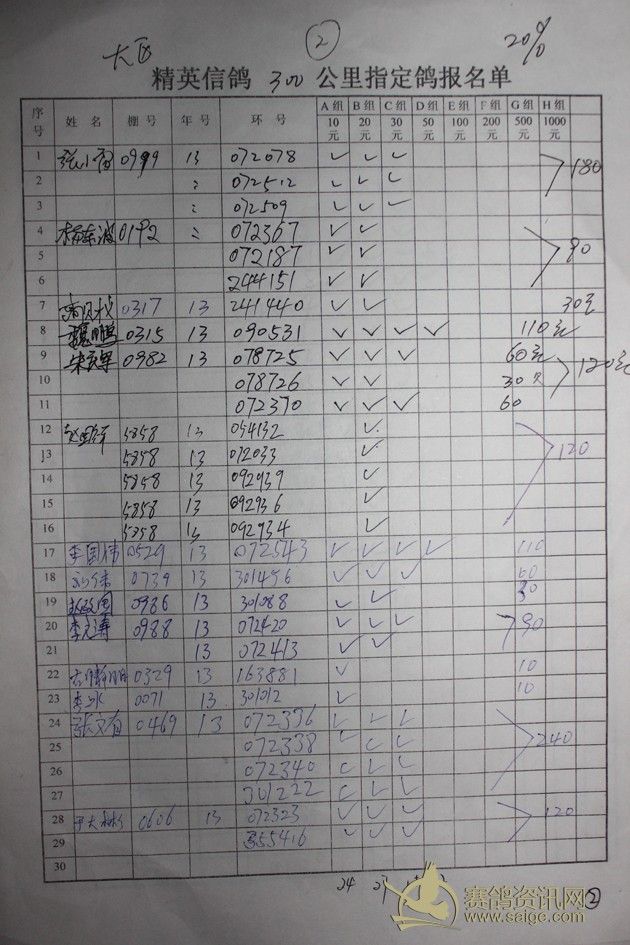 大区 ② 20%
精英信鸽 300 公里指定鸽报名单
序号 姓 名 棚 号 年 号 环 号 A组 10元 B组 20元 C组 30元 D组 50元 E组 100元 F组 200元 G组 500元 H组 1000元
1 0999 13 072078 ✓ ✓ ✓
2 072512 ✓ ✓ ✓ 180
3 072509 ✓ ✓ ✓
4 0192 072367 ✓ ✓
5 072187 ✓ ✓ 90
6 244151 ✓ ✓
7 0317 13 241440 ✓ ✓ 30元
8 0315 13 090531 ✓ ✓ ✓ ✓ 110元
9 0982 13 078725 ✓ ✓ ✓ 60元
10 078726 ✓ ✓ 30 120元
11 072370 ✓ ✓ ✓ 60
12 5858 13 054132 ✓
13 5858 13 072033 ✓ 120
14 5858 13 092939 ✓
15 5858 13 092936 ✓
16 5858 13 092934 ✓
17 李国伟 0529 13 072543 ✓ ✓ ✓ ✓ 110
18 0739 13 301456 ✓ ✓ ✓ 60
19 0986 13 301088 ✓ ✓ 30
20 0988 13 072420 ✓ ✓ ✓ 90
21 13 072413 ✓ ✓
22 0329 13 163881 ✓ 10
23 李冰 0071 13 301012 ✓ 10
24 张文有 0469 13 072336 ✓ ✓ ✓
25 072338 ✓ ✓ ✓ 240
26 072340 ✓ ✓ ✓
27 301222 ✓ ✓ ✓
28 0606 13 072323 ✓ ✓ ✓ 120
29 355416 ✓ ✓ ✓
30
24 27
②
赛鸽资讯网
www.saige.com